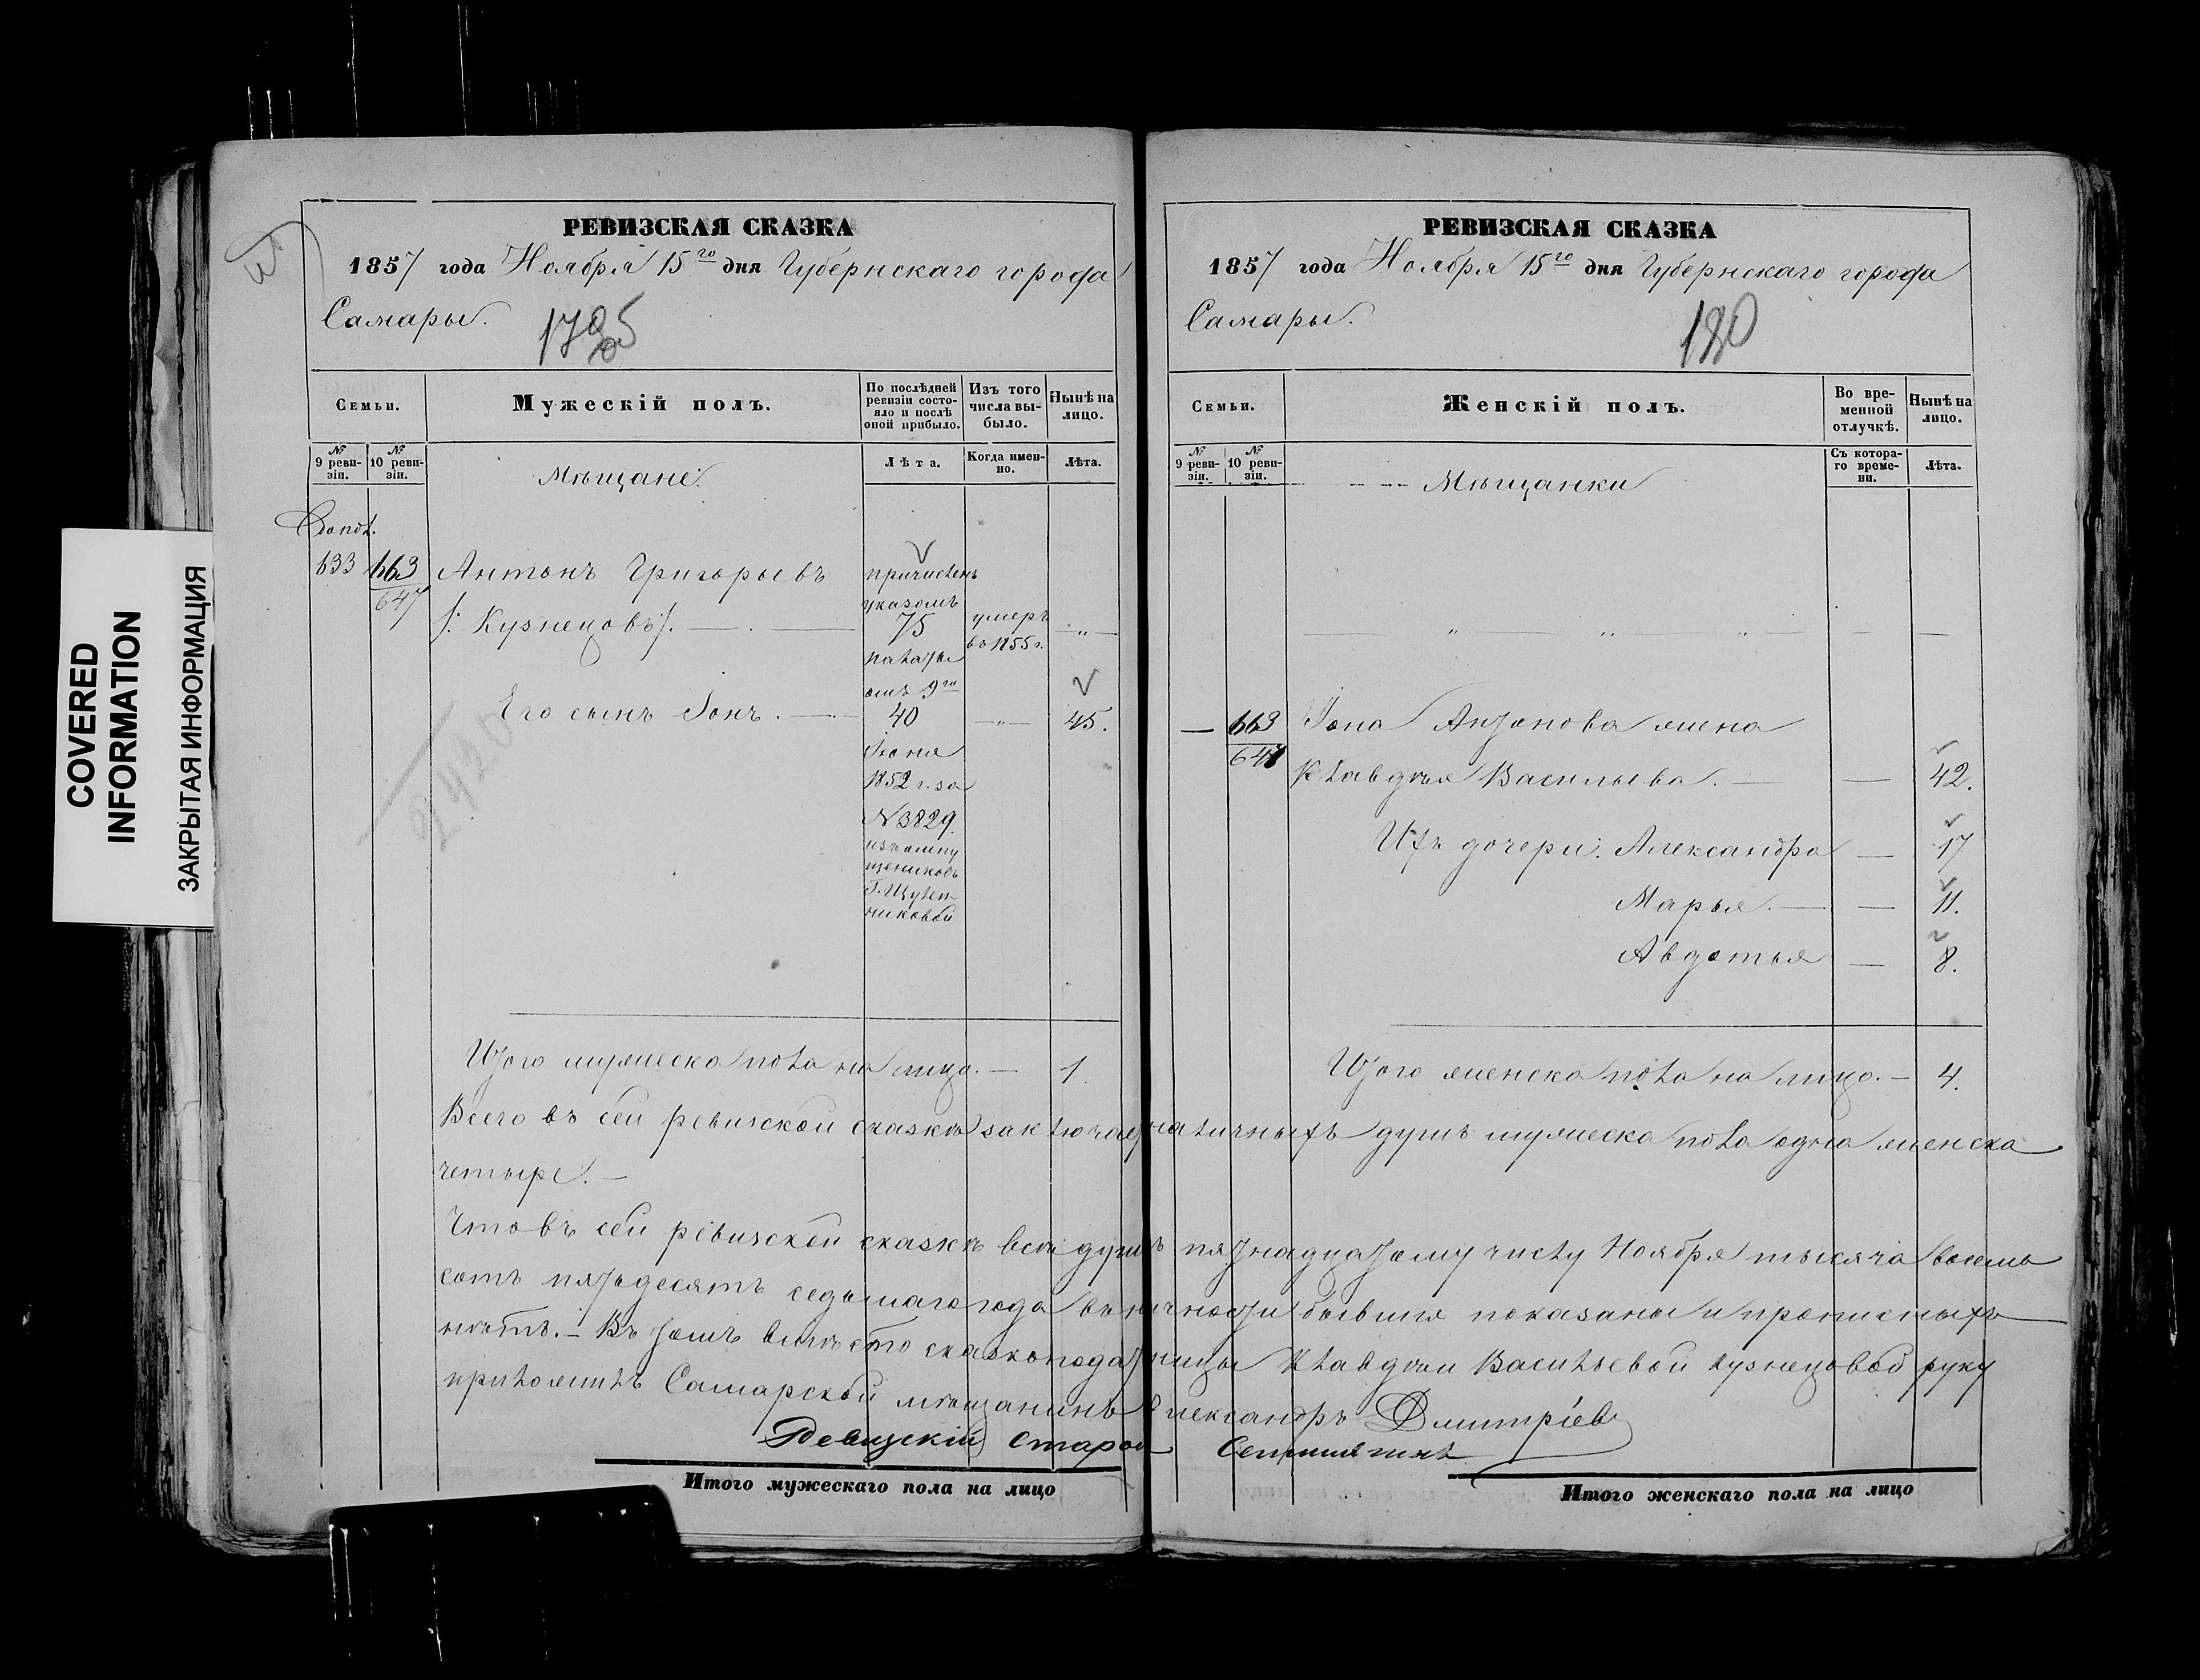 COVERED
INFORMATION
ЗАКРЫТАЯ ИНФОРМАЦИЯ
РЕВИЗСКАЯ СКАЗКА
1857 года Ноября 15го дня Губернскаго города
Самары.
Семьи.
Мужескій полъ.
По послѣдней ревизіи состояло и послѣ оной прибыло.
Изъ того числа выбыло.
Нынѣ на лицо.
№ 9 ревизіи.
№ 10 ревизіи.
Мѣщане.
Лѣта.
Когда именно.
Лѣта.
633
663
647
Антонъ Григорьевъ
/: Кузнецовъ :/. —
причисленъ
указомъ
75
умеръ
въ 1855 г.
палаты
отъ 9го
Его сынъ Іонъ. —
40
45.
Іюня
1852 г. за
№ 3829.
г. Щулеп-
никовой
2420
Итого мужеска пола на лицо. — 1.
РЕВИЗСКАЯ СКАЗКА
1857 года Ноября 15го дня Губернскаго города
Самары.
180
Семьи.
Женскій полъ.
Во временной отлучкѣ.
Нынѣ на лицо.
№ 9 ревизіи.
№ 10 ревизіи.
Мѣщанки
Съ котораго времени.
Лѣта.
— 663
647
Іона Антонова жена
Клавдѣя Васильева. — — 42.
Ихъ дочери: Александра — 17
Марья. — — 11.
Авдотья — 8.
Итого женска пола на лицо. — 4.
Всего въ сей ревизской сказкѣ заключает наличныхъ душъ мужеска пола одна женска
четыре. —
Что въ сей ревизской сказкѣ всѣ душъ пятнадцатому числу Ноября тысяча восемь
сотъ пятьдесятъ седьмаго года въ личности бывшія показаны и прописныхъ
нѣтъ. — Въ томъ вмѣсто сказкоподательницы Клавдѣи Васильевой Кузнецовой руку
приложилъ Самарской мѣщанинъ Александръ Дмитріевъ
Ревизскій Староста
Итого мужескаго пола на лицо
Итого женскаго пола на лицо